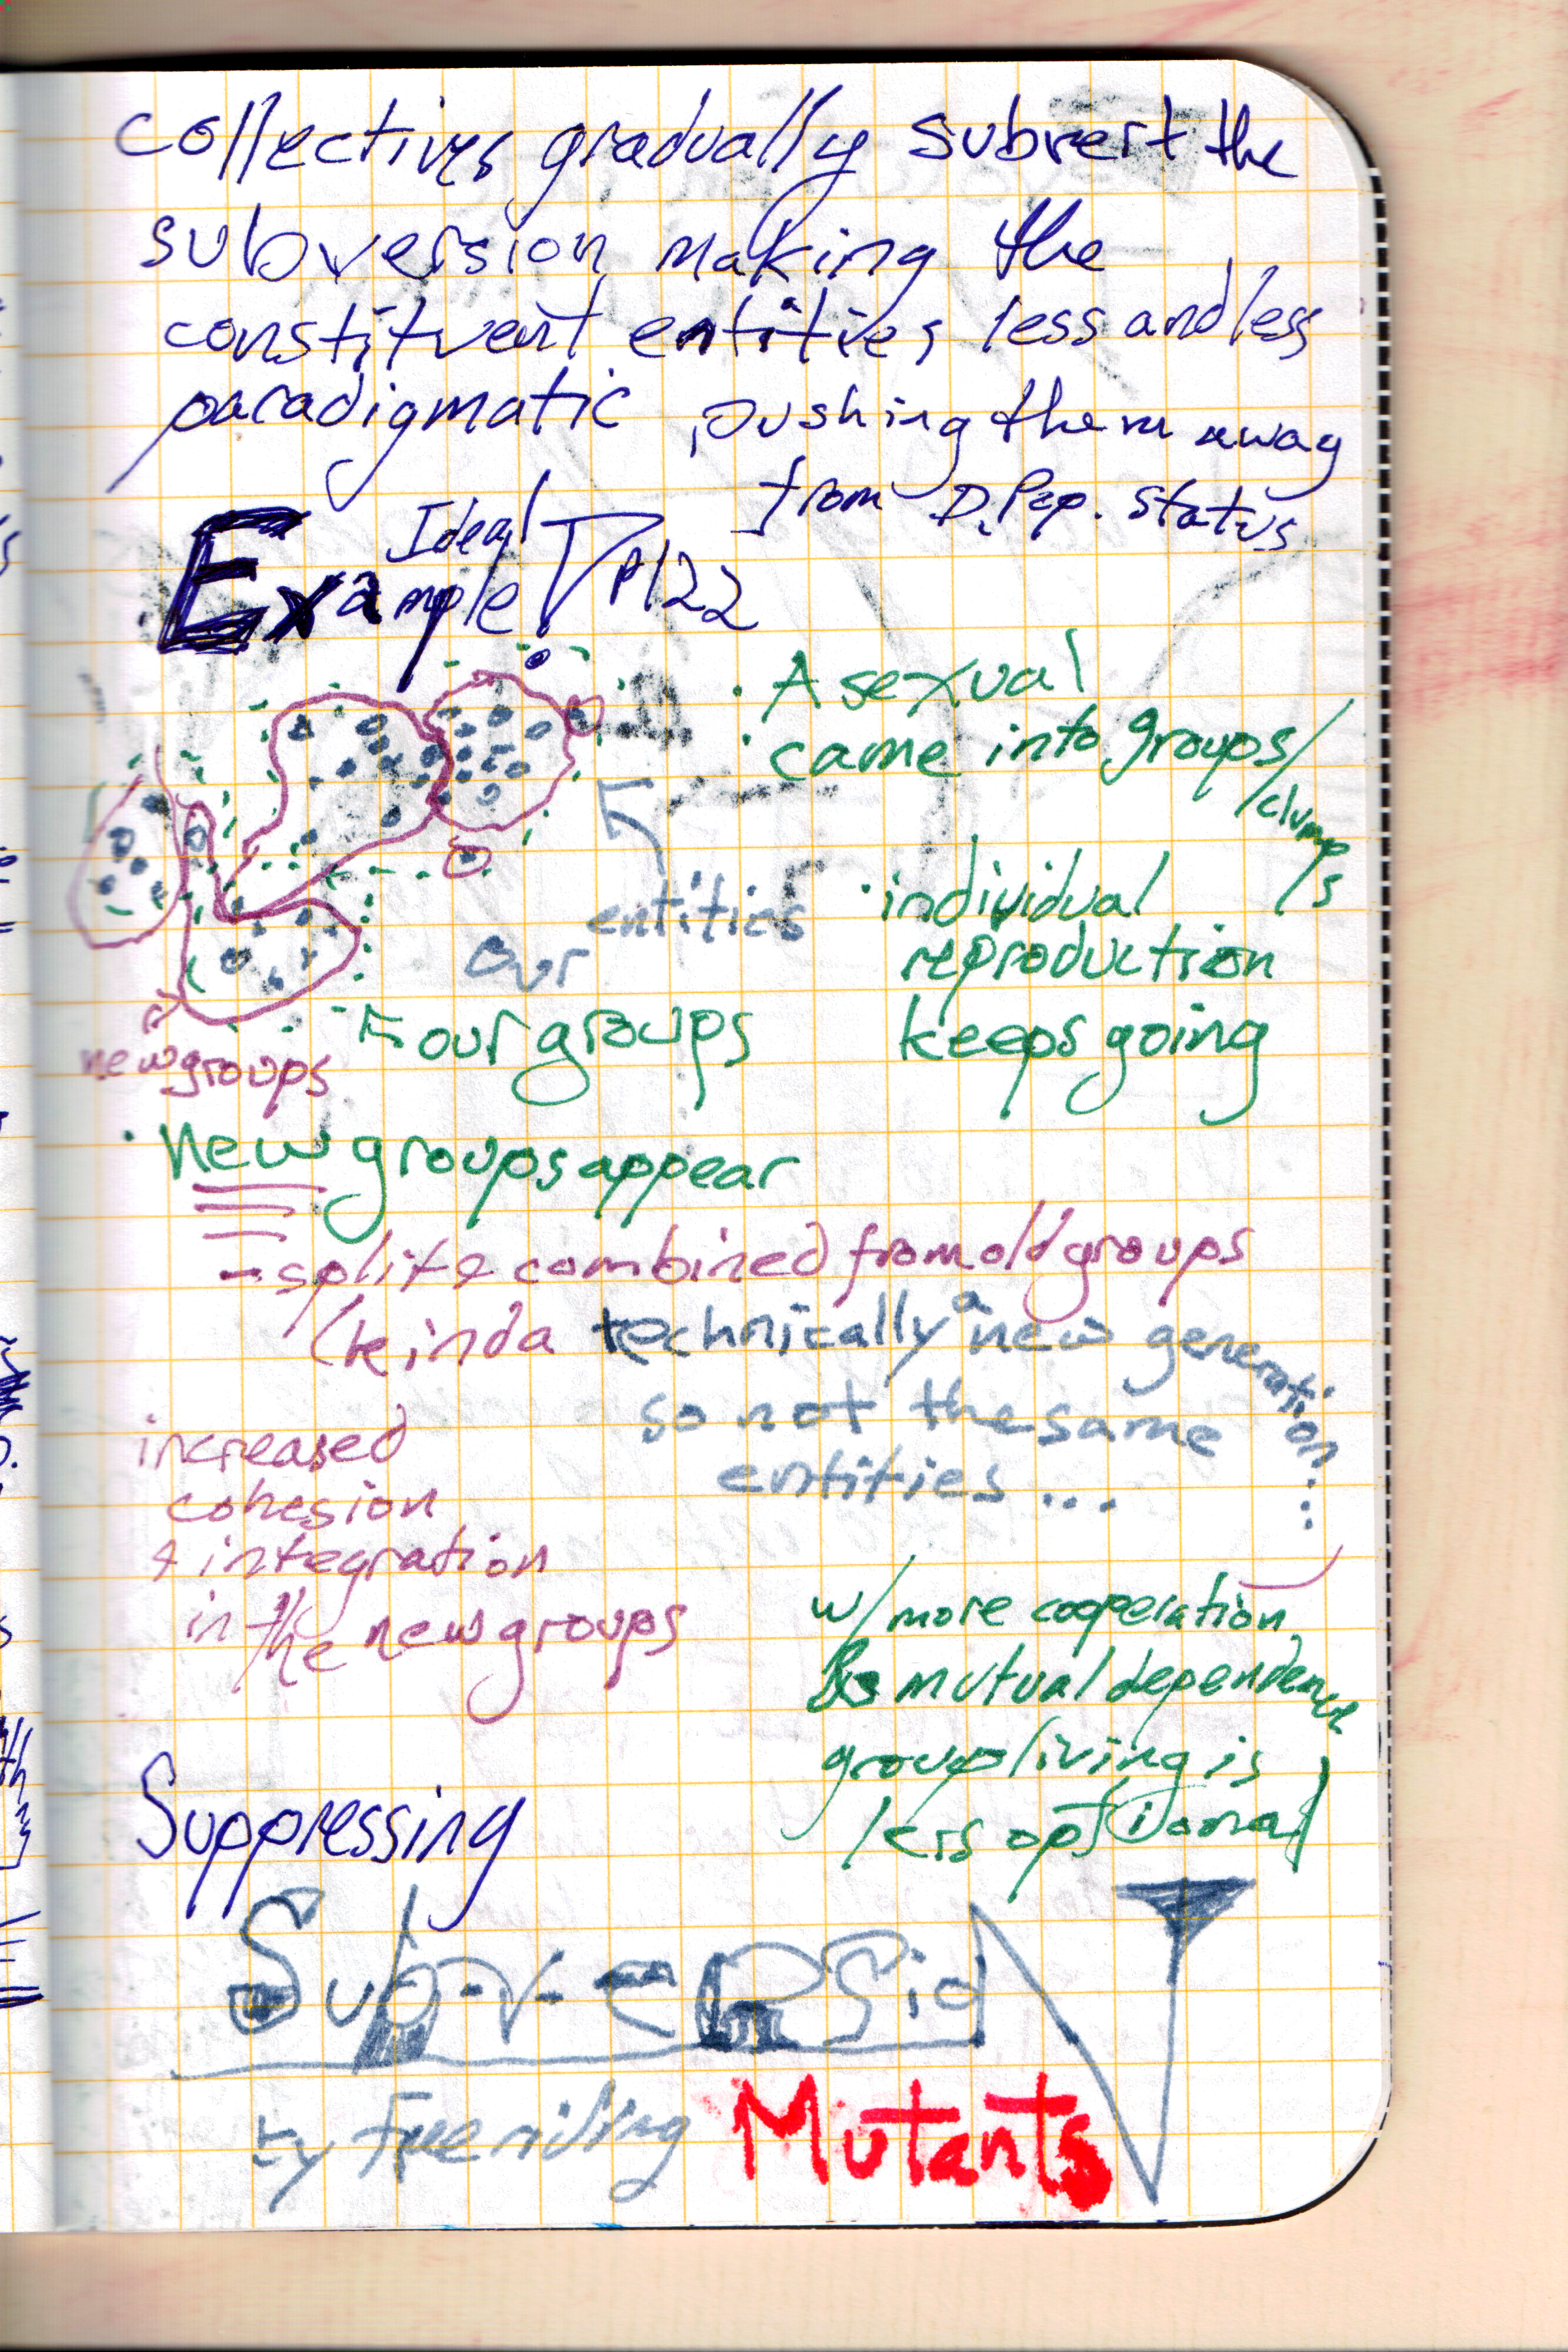 collectives gradually subvert the
subversion making the
constituent entities less and less
paradigmatic, pushing them away
from D. Pop. status
Ideal
Example P122
• Asexual
• came into groups/
clumps
• individual
reproduction
keeps going
entities
our
Four groups
new groups
• New groups appear
- split & combined from old groups
(kinda technically a new generation?
so not the same
entities ...
increased
cohesion
& integration
in the new groups
w/ more cooperation
& mutual dependence
group living is
less optional
Suppressing
SubversioN
by Freeriding Mutants